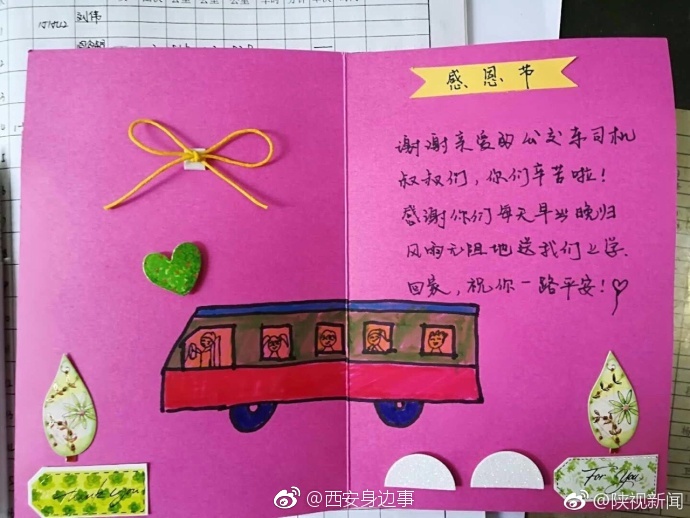 刘伟
感恩节
谢谢亲爱的公交车司机
叔叔们，你们辛苦啦！
感谢你们每天早出晚归
风雨无阻地送我们上学
回家，祝你一路平安！
Thank you
For You
@西安身边事
@陕视新闻